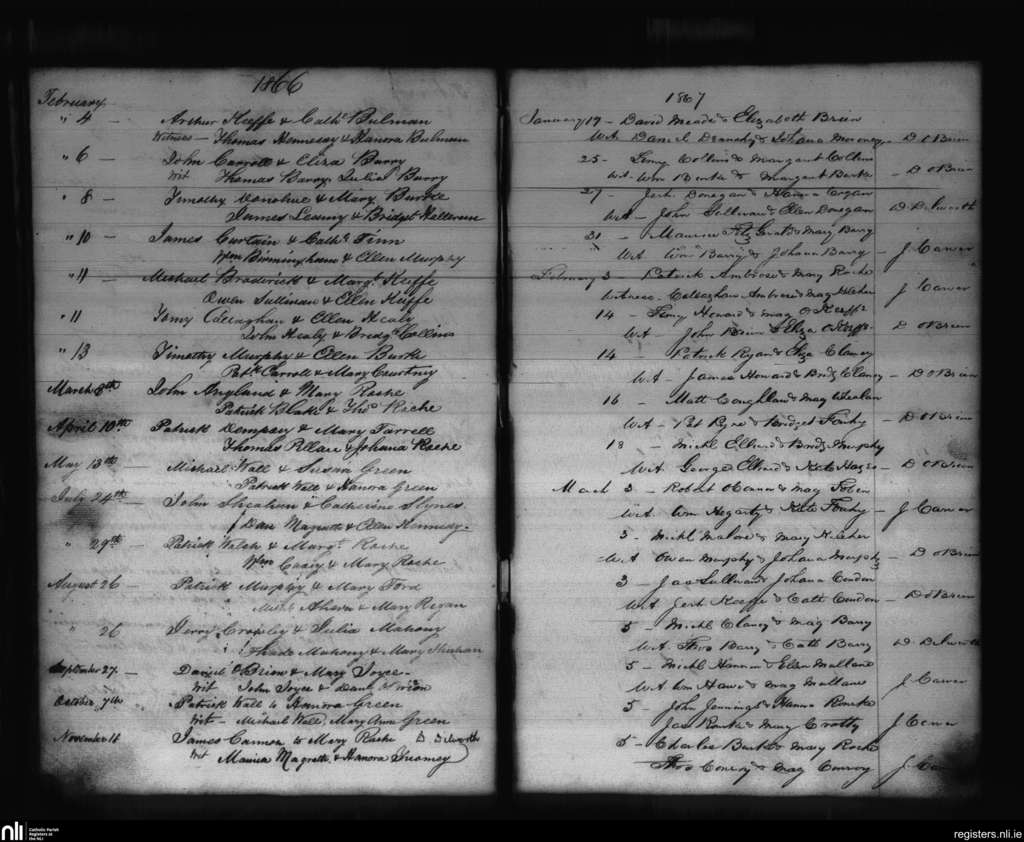 1866
February
" 4 — Arthur Keffe & Cathe Bulman
Witness — Thomas Hennessy & Hanora Bulman
" 6 — John Carroll & Eliza Barry
Wit Thomas Barry Julia Barry
" 8 — Timothy Donohue & Mary Burke
James Leamy & Bridget Halloran
" 10 — James Curtain & Cathe Finn
Wm Birmingham & Ellen Murphy
" 11 Michael Broderick & Margt Keffe
Owen Sullivan & Ellen Keffe
" 11 Callaghan & Ellen Healy
John Healy & Bridgt Collins
" 13 Timothy Murphy & Ellen Burke
Patk Carroll & Mary Courtney
March 8th John Angland & Mary Roche
Patrick Blake & Thos Roche
April 10th Patrick Dempsey & Mary Farrell
Thomas & Johana Roche
May 13th — Michael Wall & Susan Green
Patrick Wall & Hanora Green
July 24th John Sheahan & Catherine Slynes
Dan Magrath & Ellen Hennessy
" 29th — Patrick Welch & Margt Roche
Wm Casey & Mary Roche
August 26 Patrick Murphy & Mary Ford
Ahern & Mary Regan
" 26 Jerry Crowley & Julia Mahony
Thade Mahony & Mary Sheahan
September 27 — Daniel O Brien & Mary Joyce
Wit John Joyce & Danl O Brien
October 7th Patrick Wall to Hanora Green
Wit — Michael Wall, Mary Ann Green
November 11 James Cannon to Mary Roche D. Dilworth
Wit Magrath & Hanora
1867
January 19 — David Meade & Elizabeth Brien
Wit Daniel & Johana — D OBrien
25 — Collins & Margaret Collins
Wit — Wm Burke & Margaret Burke — D OBrien
27 — Jerh Donegan & Hanora
Wit — John Sullivan & Ellen Donegan D. Dilworth
31 — Maurice FitzGerald & Mary Barry
Wit Barry & Johana Barry — J Carver
February 3 — Patrick Ambrose & Mary Roche
Witness — Callaghan Ambrose & Mag J Carver
14 — Howard & Mag O Keeffe
Wit John Brien & Eliza O Keeffe D OBrien
14 Patrick Ryan & Eliza Clancy
Wit — James Howard & Bridg Clancy — D OBrien
16 Matt Coughlan & Mag Whelan
Wit — Pat Byrne & Bridget — D OBrien
18 — Michl & Bridg Murphy
Wit George & Kate Hayes — D OBrien
March 3 — Robert OConnor & Mag Tobin
Wit Wm Hegarty & Kate — J Carver
3 — Michl Malone & Mary
Wit Owen Murphy & Johana Murphy — D OBrien
3 — Jas Sullivan & Johana Condon
Wit Jerh Keeffe & Cath Condon — D OBrien
5 — Michl Clancy & Mag Barry
Wit Thos Barry & Cath Barry D. Dilworth
5 — Michl Hannan & Ellen Mullane
Wit Wm & Mag Mullane J Carver
5 — John Jennings & Hanora Rourke
Jas Rourke & Mary Crotty J Carver
5 — Charles Burke & Mary Roche
Thos Conroy & Mag Conroy J Carver
nli
Catholic Parish
Registers at
the NLI
registers.nli.ie